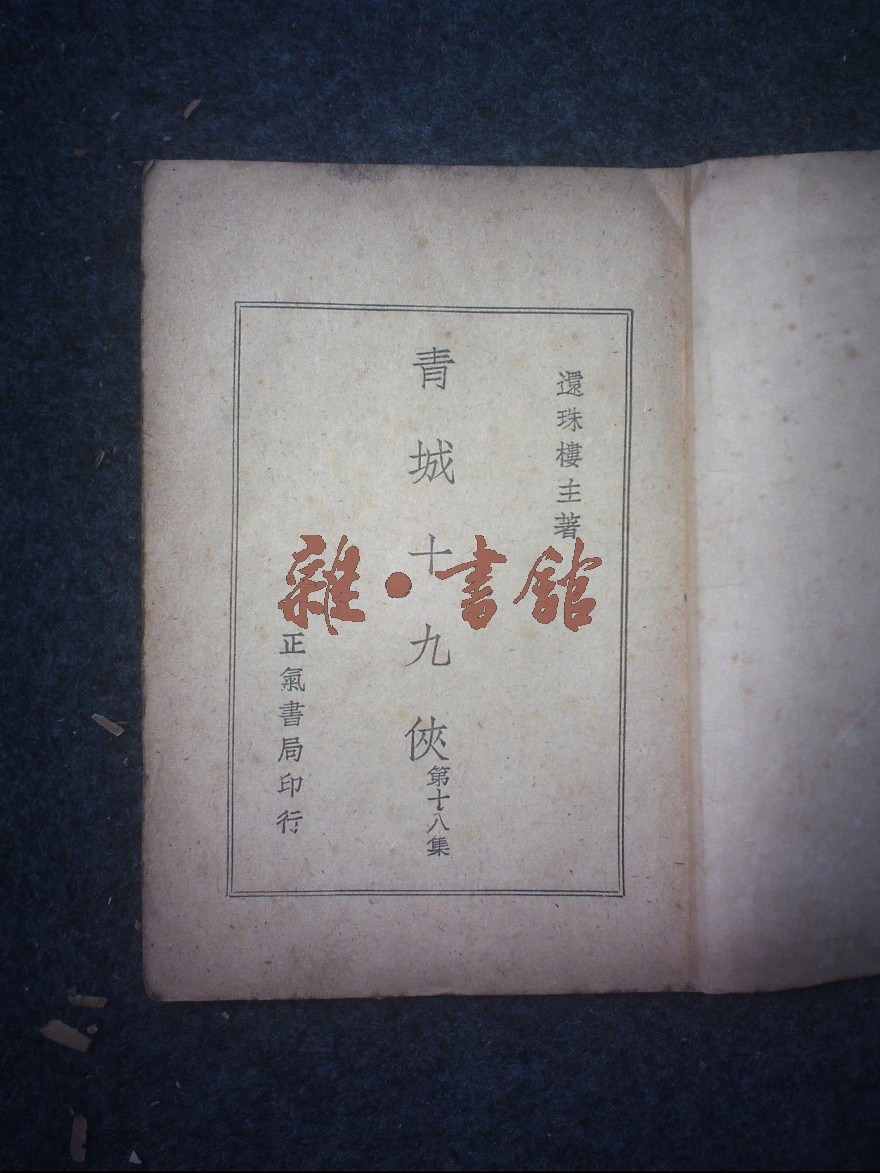 還珠樓主著
青城十九俠
第十八集
正氣書局印行
雜·書館